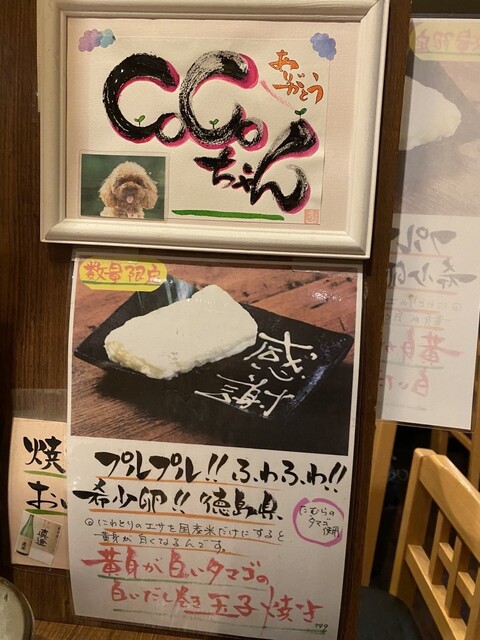 ありがとう
CoCo
ちゃん
数量限定
感謝
プルプル!! ふわふわ!!
希少卵!! 徳島県
たむらの
タマゴ
使用
◎にわとりのエサを国産米だけにすると
黄身が白くなるんです。
黄身が白いタマゴの
白いだし巻き玉子焼き
799
数量限定
プル
希少卵
黄身が
白いだ
焼